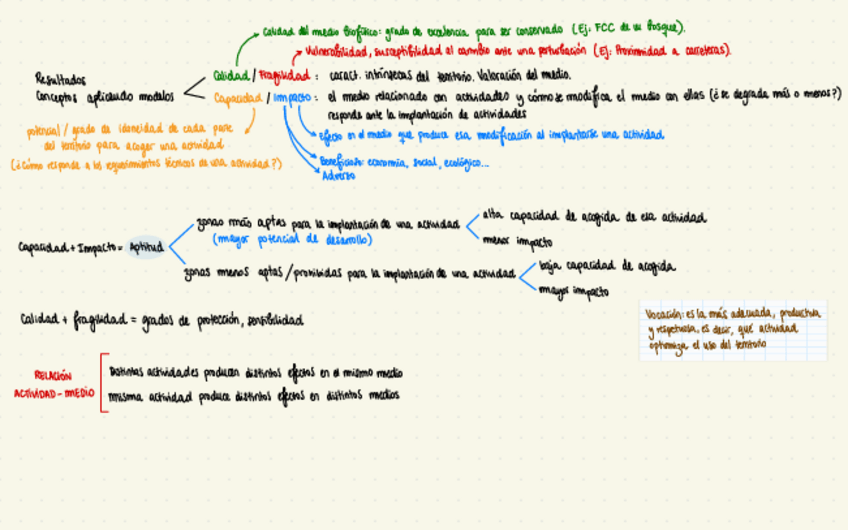 Calidad del medio biofísico: grado de excelencia para ser conservado (Ej: FCC de un bosque).
Vulnerabilidad, susceptibilidad al cambio ante una perturbación (Ej: Proximidad a carreteras).
Resultados
Conceptos aplicando modelos
Calidad / Fragilidad : caract. intrínsecas del territorio. Valoración del medio.
Capacidad / Impacto : el medio relacionado con actividades y cómo se modifica el medio con ellas (¿se degrada más o menos?)
responde ante la implantación de actividades
potencial / grado de idoneidad de cada parte
del territorio para acoger una actividad
(¿Cómo responde a los requerimientos técnicos de una actividad?)
efecto en el medio que produce esa modificación al implantarse una actividad
Beneficioso: economía, social, ecológico...
Adverso
Capacidad + Impacto = Aptitud
zonas más aptas para la implantación de una actividad
(mayor potencial de desarrollo)
alta capacidad de acogida de esa actividad
menor impacto
zonas menos aptas / prohibidas para la implantación de una actividad
baja capacidad de acogida
mayor impacto
Calidad + fragilidad = grados de protección, sensibilidad
Vocación: es la más adecuada, productiva
y respetuosa, es decir, qué actividad
optimiza el uso del territorio
RELACIÓN
ACTIVIDAD - MEDIO
Distintas actividades producen distintos efectos en el mismo medio
misma actividad produce distintos efectos en distintos medios